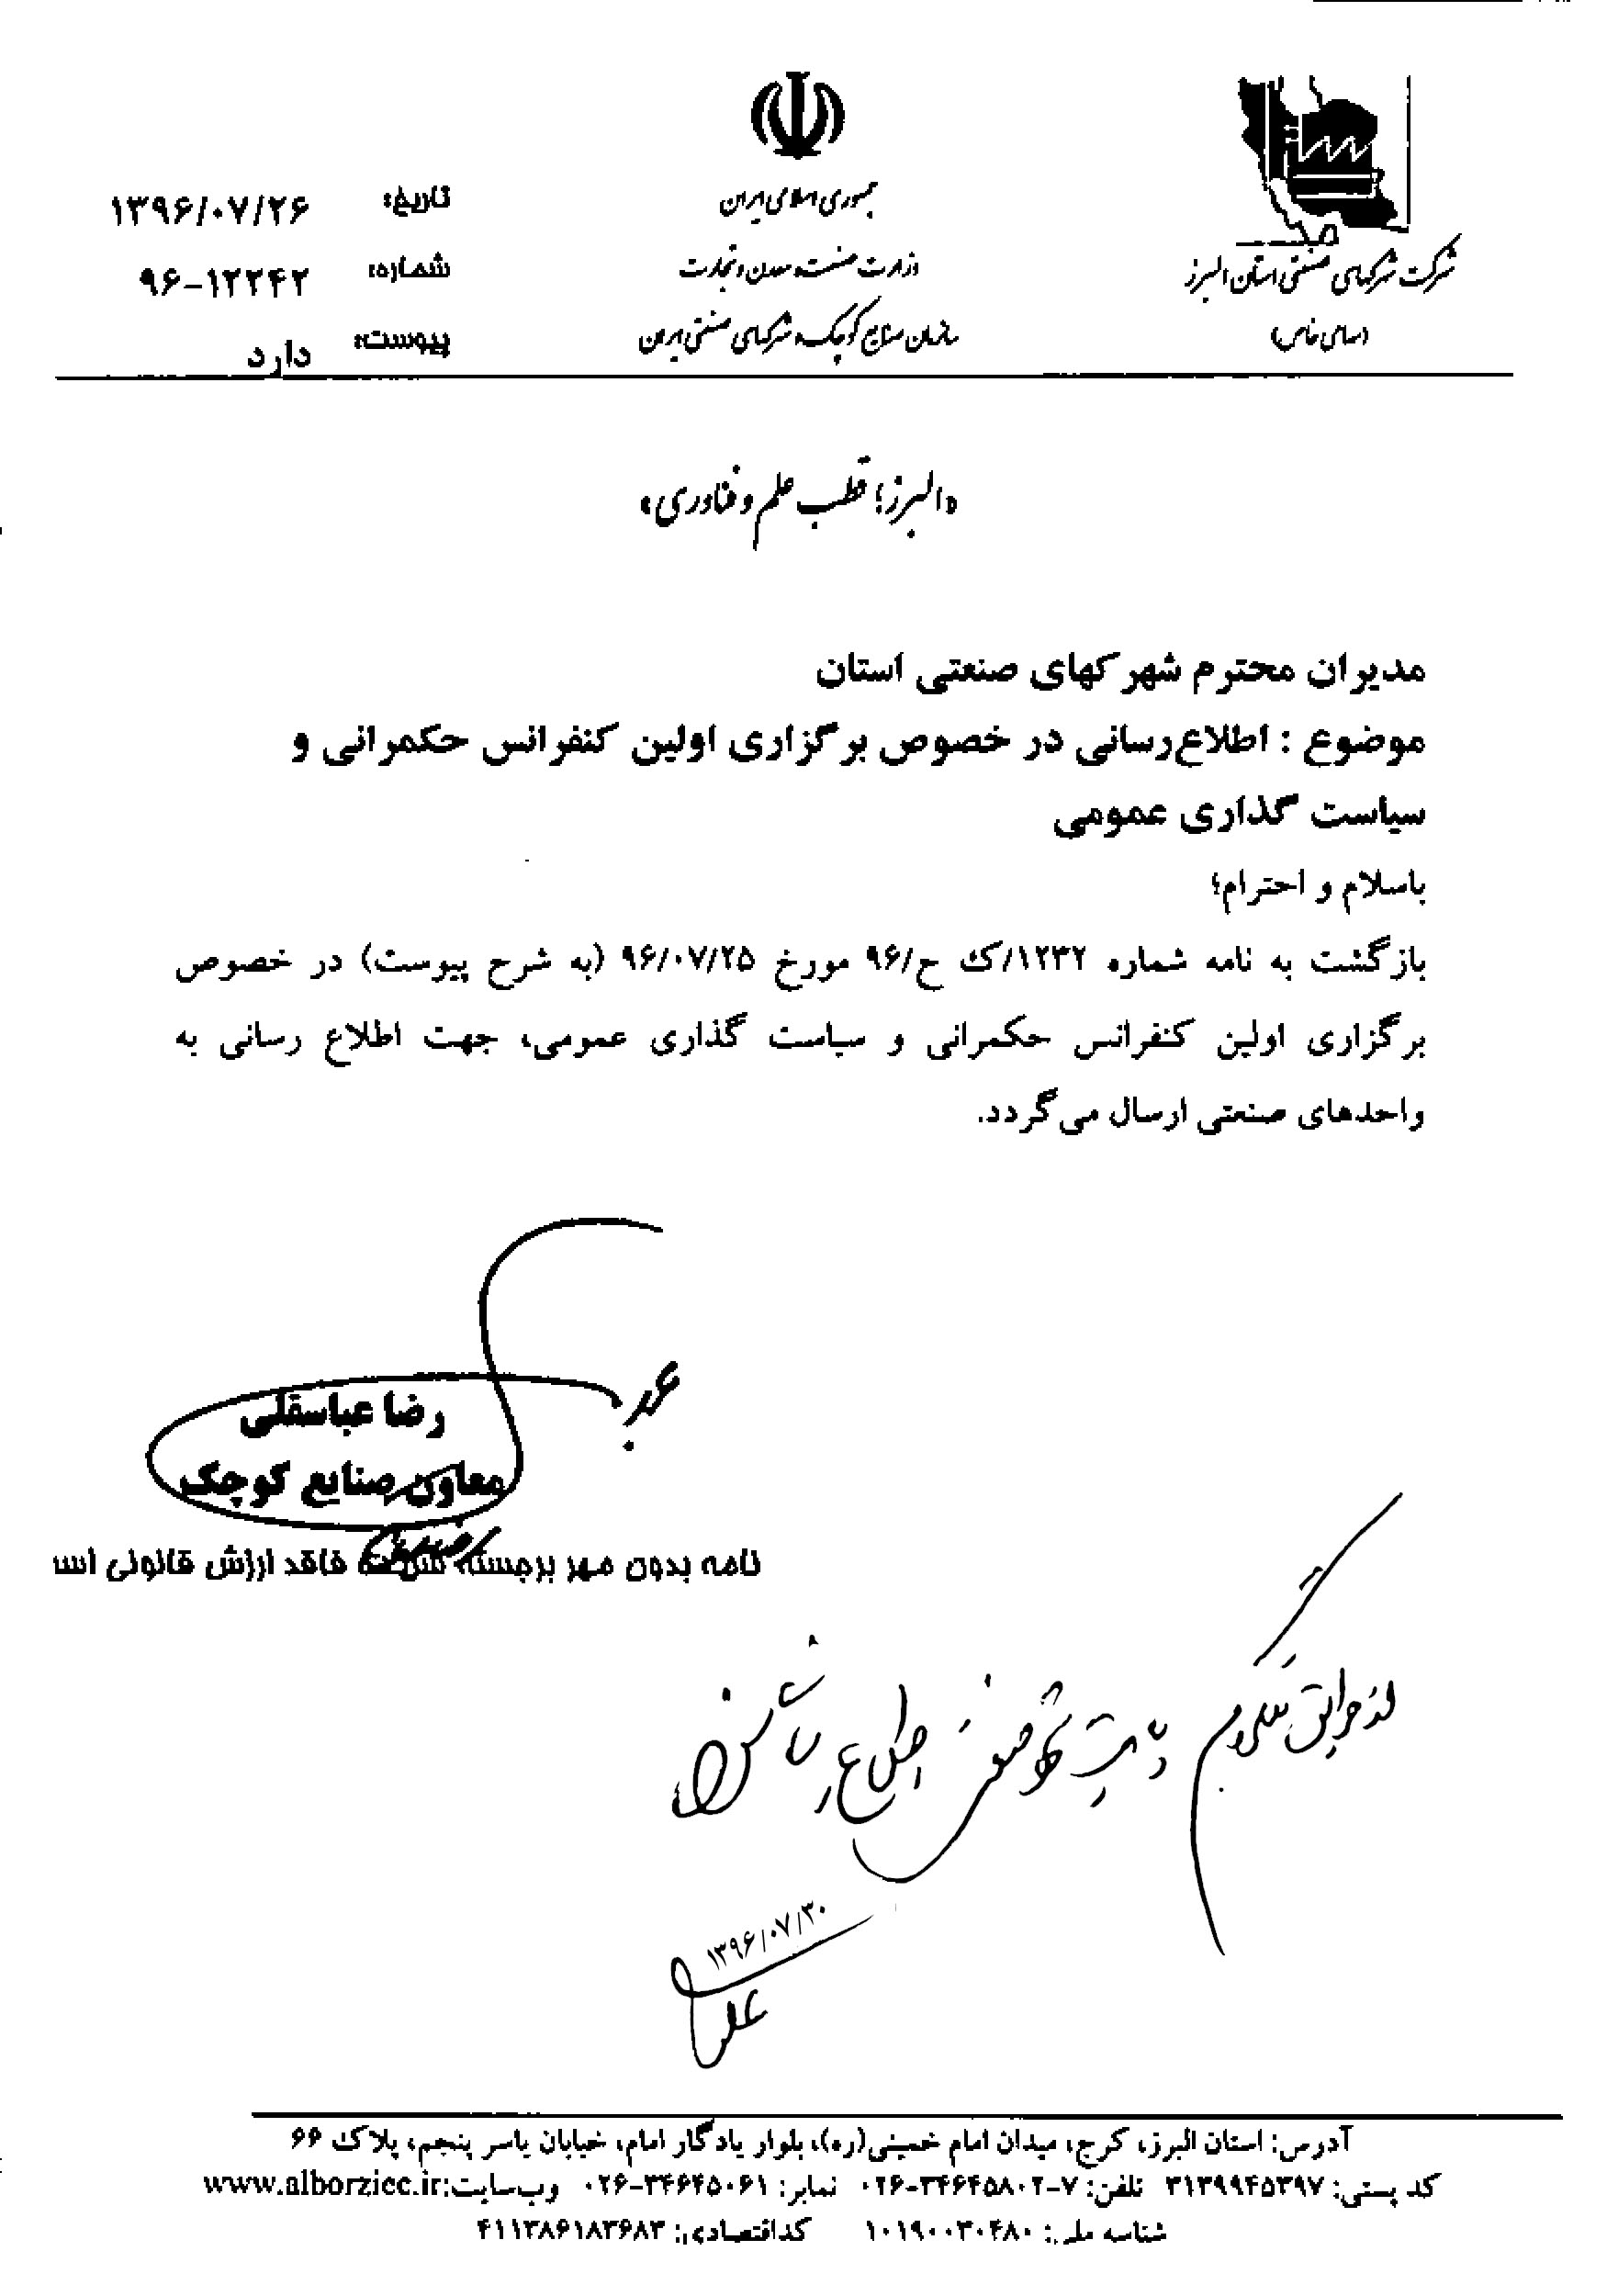 شرکت شهرکهای صنعتی استان البرز
(سهامی خاص)
جمهوری اسلامی ایران
وزارت صنعت، معدن و تجارت
سازمان صنایع کوچک و شهرکهای صنعتی ایران
تاریخ: ۱۳۹۶/۰۷/۲۶
شماره: ۹۶-۱۲۲۴۲
پیوست: دارد
«البرز؛ قطب علم و فناوری»
مدیران محترم شهرکهای صنعتی استان
موضوع : اطلاع‌رسانی در خصوص برگزاری اولین کنفرانس حکمرانی و
سیاست گذاری عمومی
باسلام و احترام؛
بازگشت به نامه شماره ۱۲۳۲/ک ح/۹۶ مورخ ۹۶/۰۷/۲۵ (به شرح پیوست) در خصوص
برگزاری اولین کنفرانس حکمرانی و سیاست گذاری عمومی، جهت اطلاع رسانی به
واحدهای صنعتی ارسال می‌گردد.
رضا عباسقلی
معاون صنایع کوچک
نامه بدون مهر برجسته فاقد ارزش قانونی اس
اطلاع
۱۳۹۶/۰۷/۳۰
آدرس: استان البرز، کرج، میدان امام خمینی(ره)، بلوار یادگار امام، خیابان یاسر پنجم، پلاک ۶۶
کد پستی: ۳۱۳۹۹۴۵۳۹۷ تلفن: ۷-۰۲۶-۳۴۶۴۵۸۰۲ نمابر: ۰۲۶-۳۴۶۴۵۰۶۱ وب‌سایت:www.alborziec.ir
شناسه ملی: ۱۰۱۹۰۰۳۰۴۸۰ کداقتصادی: ۴۱۱۳۸۶۱۸۳۶۸۳